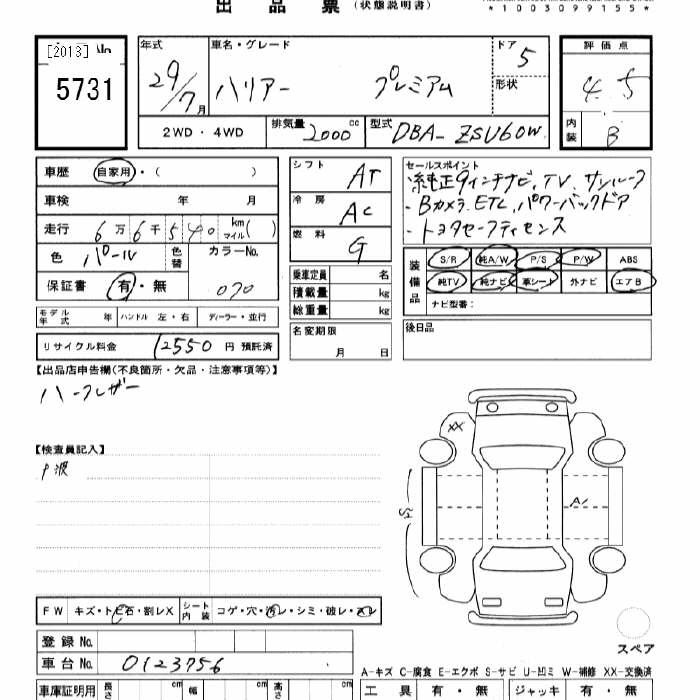 出品票 (状態説明書)
*1003099155*
[2013] No
5731
年式 29/7月
車名・グレード ハリアー プレミアム
ドア 5
形状
評価点 4.5
内装 B
2WD・4WD 排気量 2000 cc 型式 DBA-ZSU60W
車歴 自家用・( )
車検 年 月
走行 6万6千540 km マイル( )
色 パール 色替 カラーNo. 070
保証書 有・無
モデル年式 年 ハンドル 左・右 ディーラー・並行
リサイクル料金 12550 円 預託済
シフト AT
冷房 AC
燃料 G
乗車定員 名
積載量 kg
総重量 kg
名変期限
月 日
セールスポイント
・純正9インチナビ,TV,サンルーフ
・Bカメラ.ETC,パワーバックドア
・トヨタセーフティセンス
装備品 S/R 純A/W P/S P/W ABS
純TV 純ナビ 革シート 外ナビ エアB
ナビ型番:
後日品
【出品店申告欄(不良箇所・欠品・注意事項等)】
ハーフレザー
【検査員記入】
P波
XX
A1
FW キズ・トビ石・割レX シート内装 コゲ・穴・汚レ・シミ・破レ・スレ
登録No.
車台No. 0123756
スペア
A-キズ C-腐食 E-エクボ S-サビ U-凹ミ W-補修 XX-交換済
車庫証明用 長さ cm 幅 cm 高さ cm
工具 有・無 ジャッキ 有・無